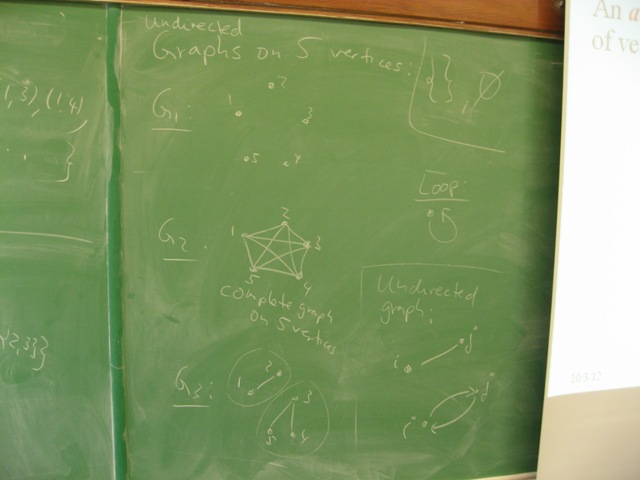 1,3), (1,4)
. . }
{2,3}}
Undirected
Graphs on 5 vertices:
{ }, ∅
G1:
1
2
3
5
4
Loop:
G2.
1
2
3
5
4
complete graph
on 5 vertices
Undirected
graph:
i
j
G3:
1
2
3
5
4
i
j
An a
of ve
10/3/12